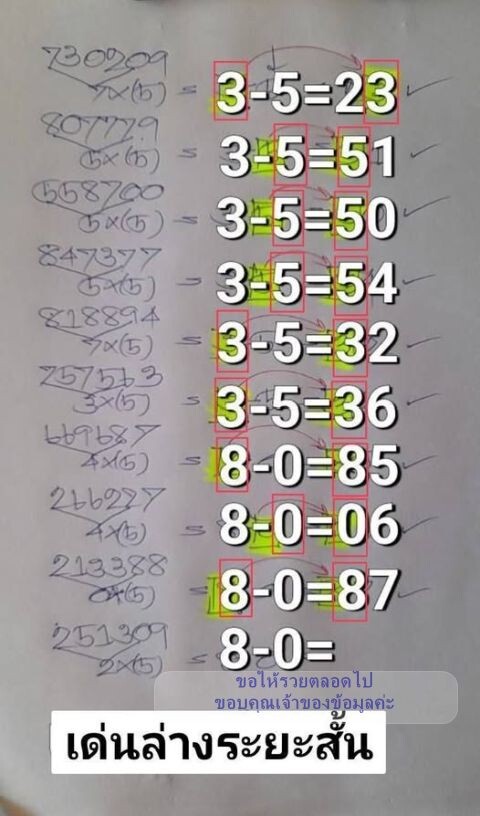 730209
7×(5) = 3-5=23
807779
5×(5) = 3-5=51
558700
5×(5) = 3-5=50
847377
5×(5) = 3-5=54
818894
7×(5) = 3-5=32
757563
3×(5) = 3-5=36
669687
4×(5) = 8-0=85
266227
4×(5) = 8-0=06
213388
0×(5) = 8-0=87
251309
2×(5) = 8-0=
ขอให้รวยตลอดไป
ขอบคุณเจ้าของข้อมูลค่ะ
เด่นล่างระยะสั้น